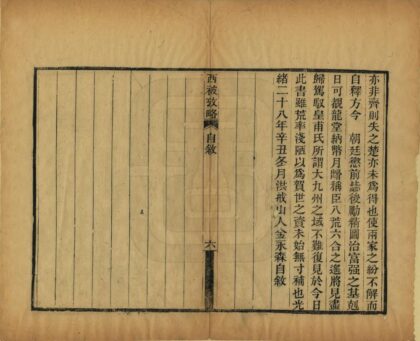 亦非齊則失之楚亦未為得也使兩家之紛不解而
自釋方今　朝廷懲前毖後勵精圖治富强之基尅
日可觀龍堂納幣月𦡱稱臣八荒六合之遙將見盡
歸駕馭皇甫氏所謂大九州之域不難復見於今日
此書雖荒率淺陋以為賀世之資未始無寸補也光
緒二十八年辛丑冬月洪戒山人金永森自敘
西被攷略
自敘
六